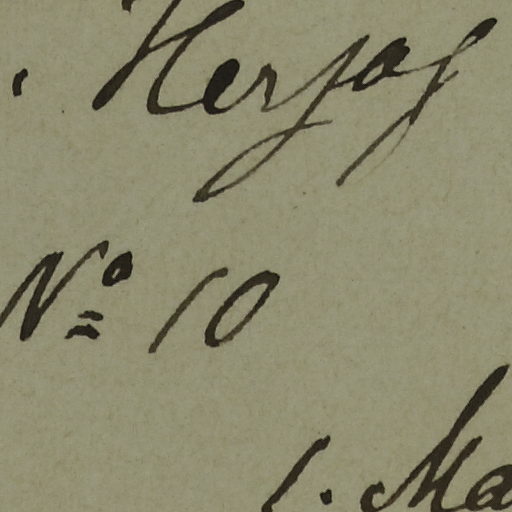 Herzog
Nº 10
1. Ma